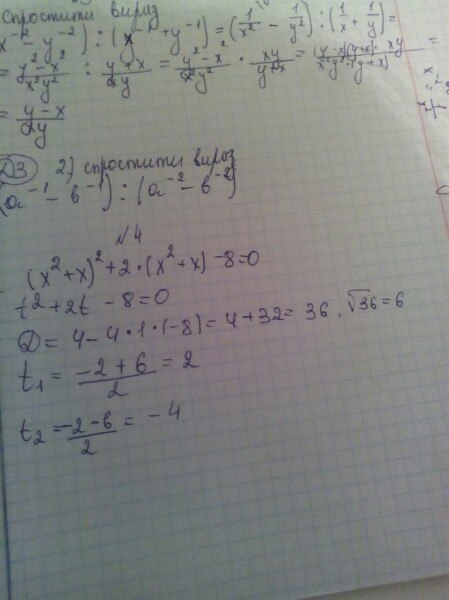 спростити вираз
x⁻² - y⁻²) : (x⁻¹ + y⁻¹) = (1/x² - 1/y²) : (1/x + 1/y) =
= y² - x² / x²y² : y + x / xy = y² - x² / x²y² · xy / y + x = (y - x)(y + x) · xy / x²y² · (y + x) =
= y - x / xy
ДЗ 2) спростити вираз
(a⁻¹ - b⁻¹) : (a⁻² - b⁻²)
№4
(x² + x)² + 2 · (x² + x) - 8 = 0
t² + 2t - 8 = 0
D = 4 - 4 · 1 · (-8) = 4 + 32 = 36, √36 = 6
t₁ = -2 + 6 / 2 = 2
t₂ = -2 - 6 / 2 = -4